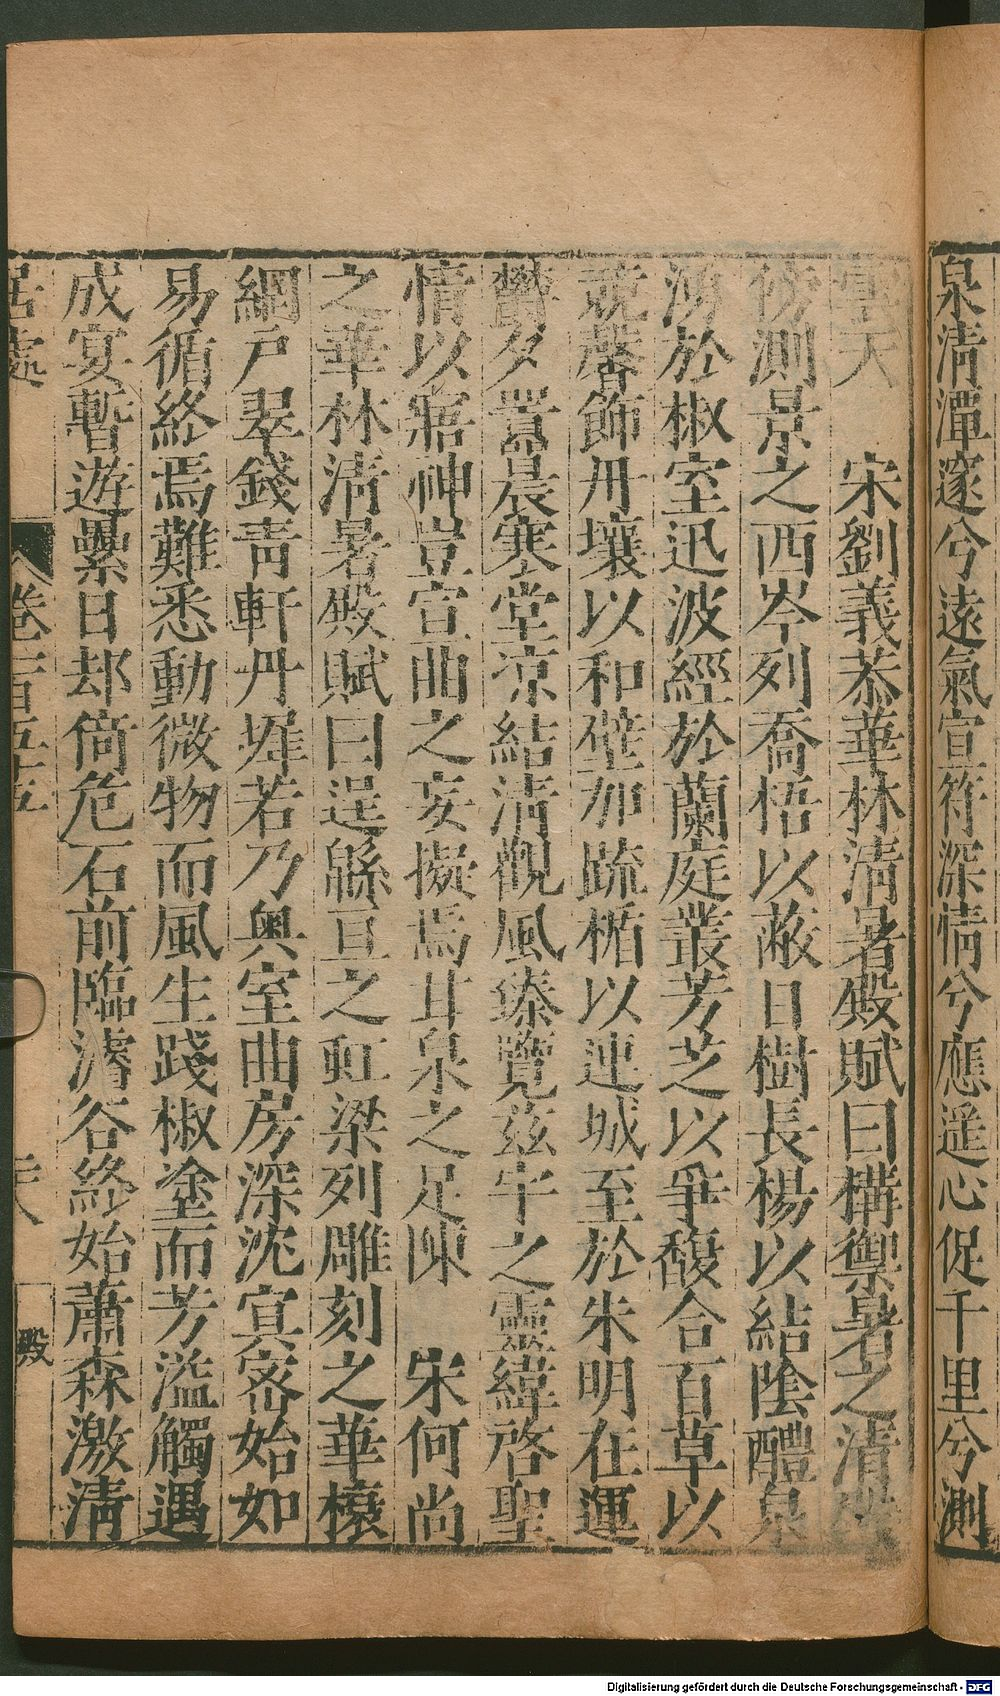 泉清潭邃兮遠氣宣符深情兮應遥心促千里兮測
宵天　宋劉義恭華林清暑殿賦曰構禦暑之清
傍測景之西岑列喬梧以蔽日樹長楊以結陰醴泉
涌於椒室迅波經於蘭庭叢芳芝以爭馥合百草以
競馨飾丹壤以和壁加疏楯以連城至於朱明在運
欝夕翥晨寒堂凉結清觀風臻覽兹宇之靈緯啓聖
情以寤神豈宣曲之妄擬焉甘泉之足陳　宋何尚
之華林清暑殿賦曰逞緜亘之虹梁列雕刻之華榱
網戸翠錢青軒丹墀若乃奥室曲房深沈㝠密始如
易循終焉難悉動微物而風生踐椒塗而芳溢觸遇
成宴暫遊累日却倚危石前臨濬谷終始蕭森激清
居處　卷一百五十五　殿
Digitalisierung gefördert durch die Deutsche Forschungsgemeinschaft - DFG